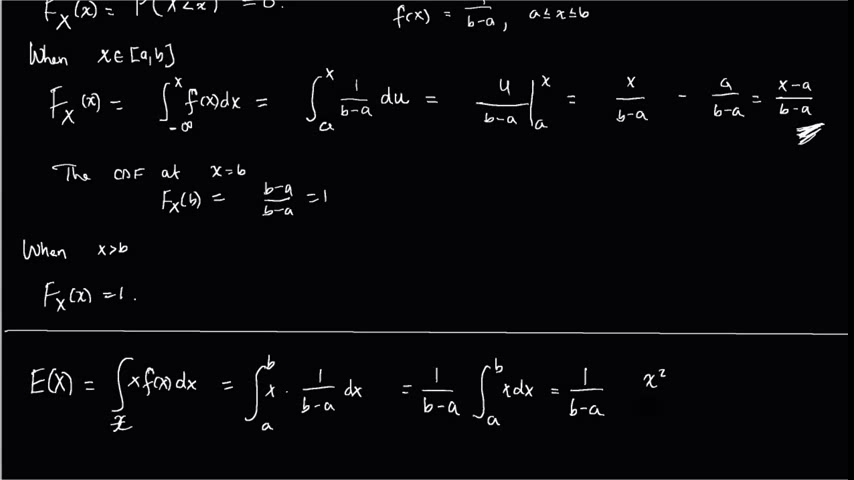 F_X(x) = P(X<x) = 0.
f(x) = 1/(b-a), a≤x≤b
When x∈[a,b]
F_X(x) = ∫_{-∞}^{x} f(x)dx = ∫_a^x 1/(b-a) du = u/(b-a) |_a^x = x/(b-a) - a/(b-a) = (x-a)/(b-a)
The CDF at x=b
F_X(b) = (b-a)/(b-a) = 1
When x>b
F_X(x) = 1.
E(X) = ∫_x x f(x) dx = ∫_a^b x · 1/(b-a) dx = 1/(b-a) ∫_a^b x dx = 1/(b-a) x²